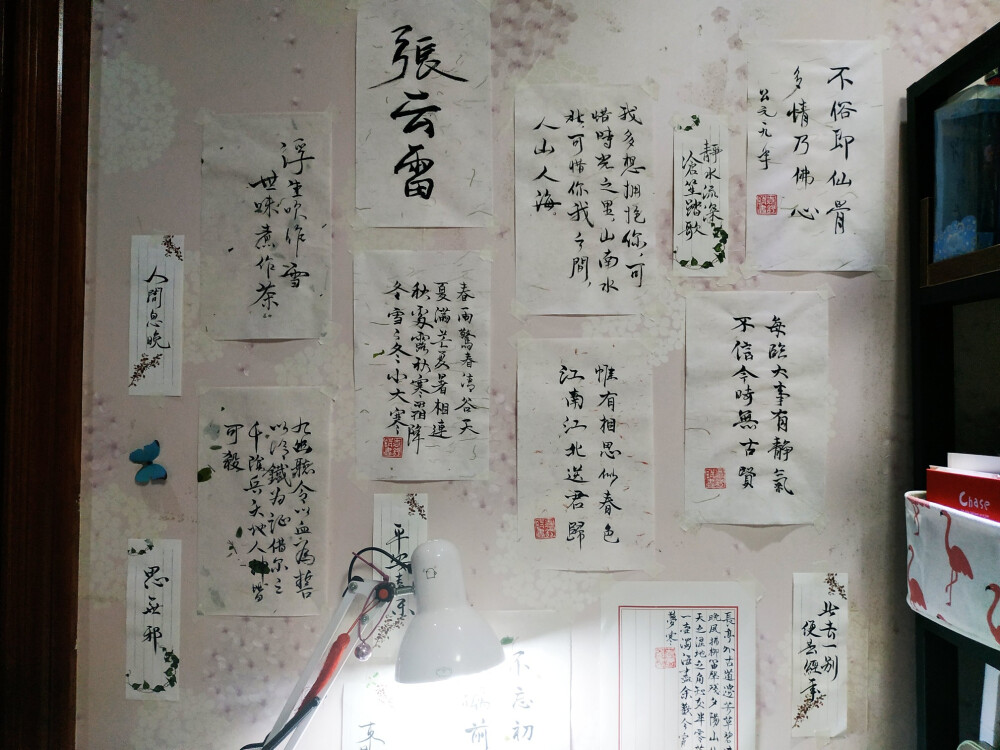 張云雷
不俗即仙骨
多情乃佛心
靜水流深
滄笙踏歌
我多想拥抱你,可
惜時光之里山南水
北可惜你我之間,
人山人海
浮生吹作雪
世味煮作茶
人間忽晚
春雨驚春清谷天
夏滿芒夏暑相連
秋處露秋寒霜降
冬雪〻冬小大寒
每臨大事有靜氣
不信今時無古賢
惟有相思似春色
江南江北送君歸
九幽聽令以血為誓
以冷鐵为证借尔三
千陰兵天地人神皆
可殺
思无邪
平安喜乐
長亭外古道邊芳草碧
晚風拂柳笛聲殘夕陽山
天之涯地之角知交半零
一壺濁酒盡余歡今宵
夢寒
此去一别
便是經年
不忘初
前
Chase